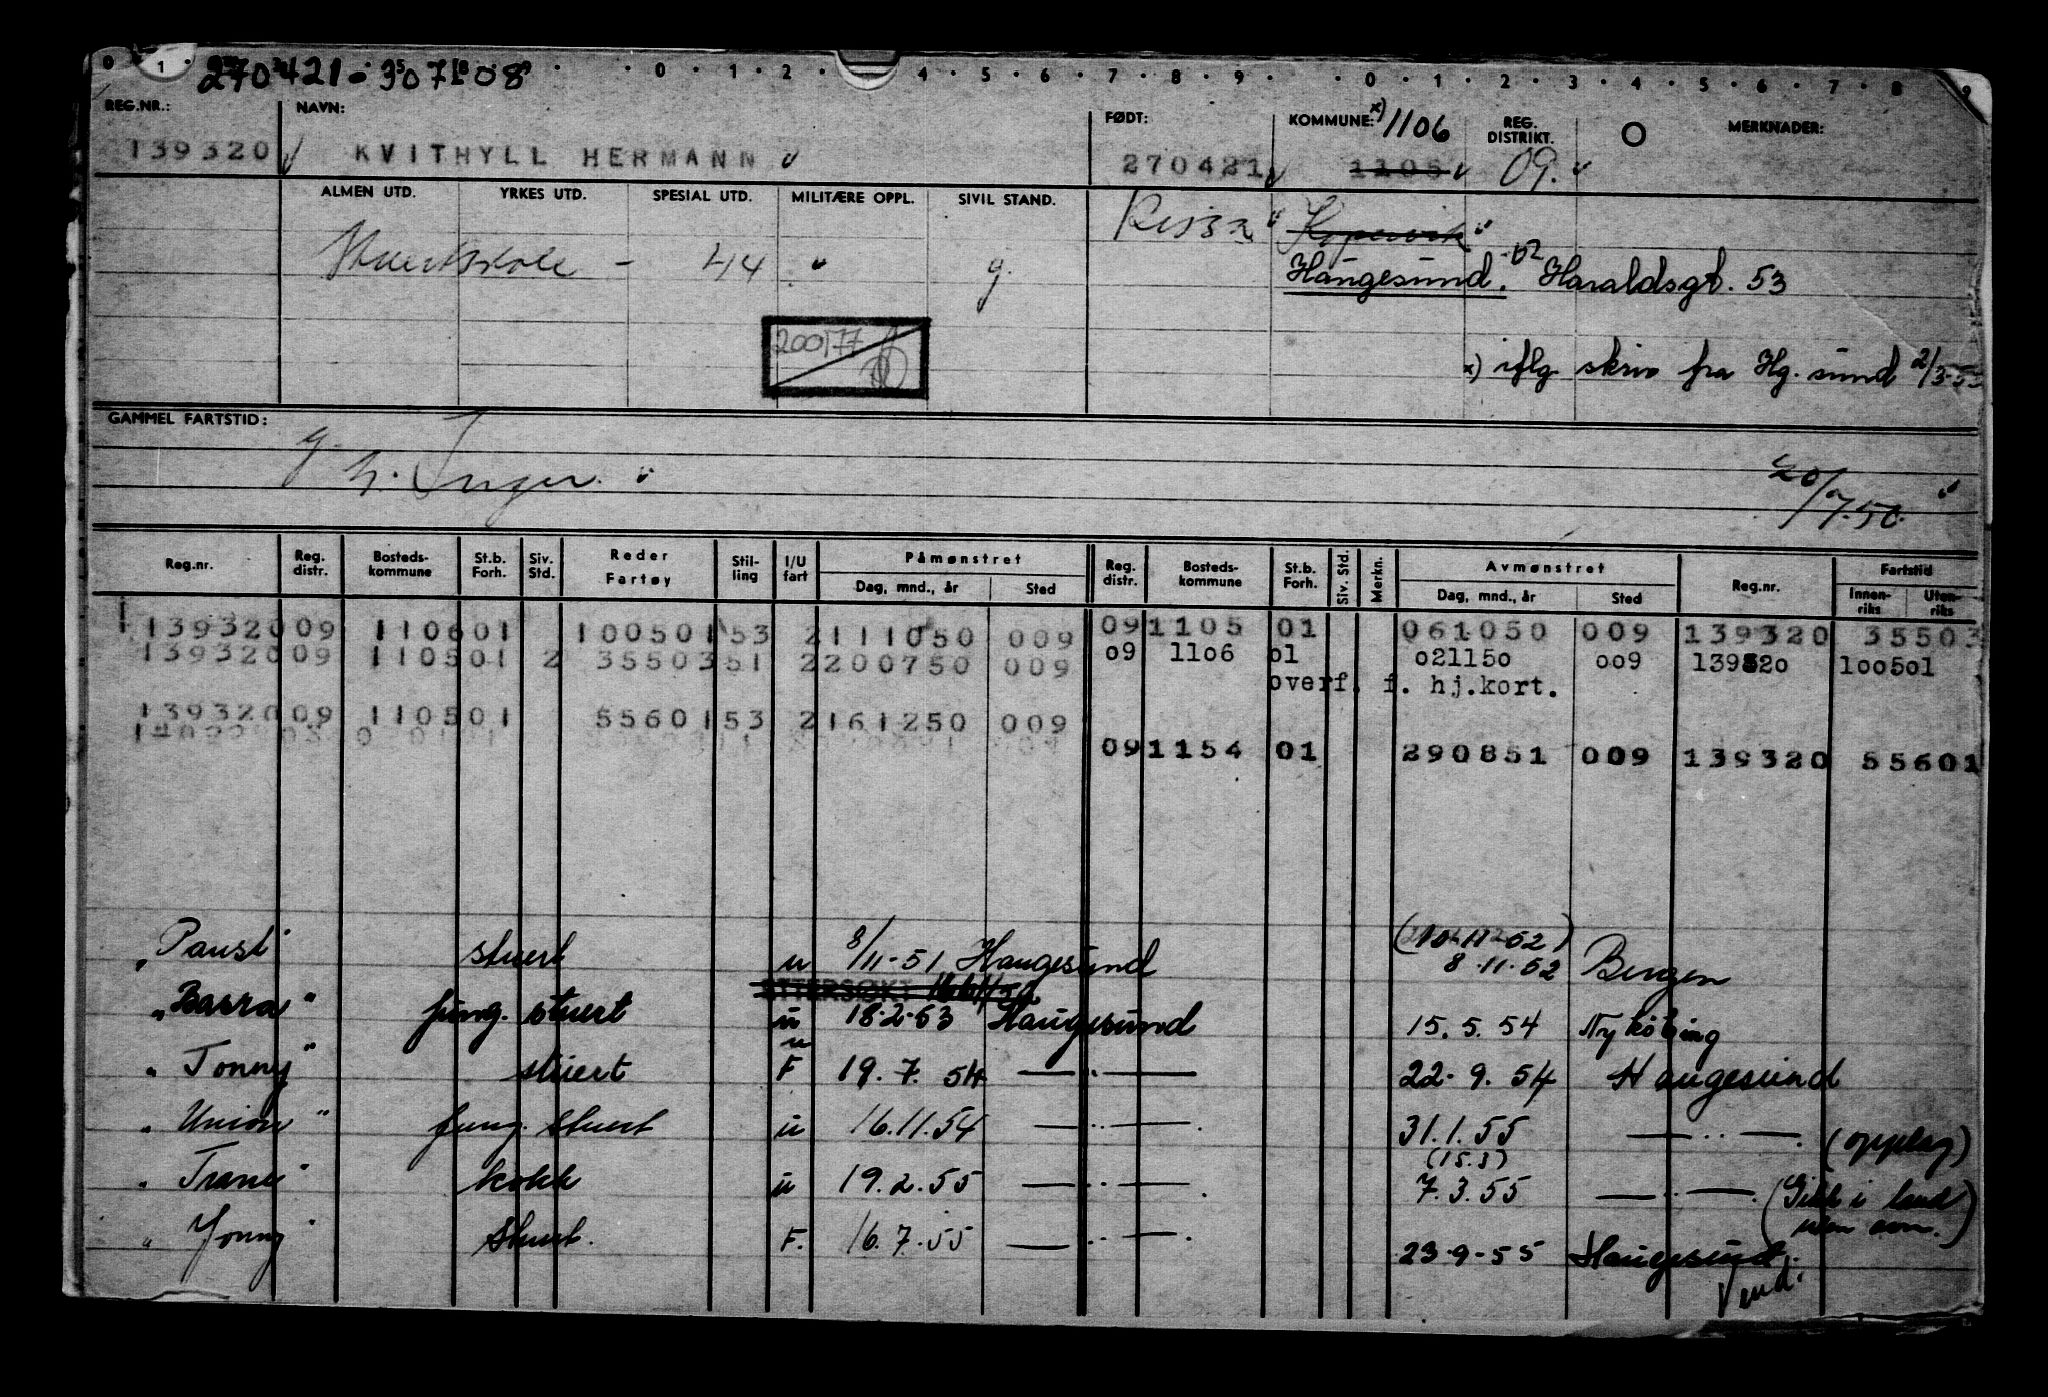 270421-30708
REG.NR.: NAVN: FØDT: KOMMUNE: x) 1106 REG. DISTRIKT. MERKNADER:
139320 KVITHYLL HERMANN 270421 1105 09.
ALMEN UTD. YRKES UTD. SPESIAL UTD. MILITÆRE OPPL. SIVIL STAND. Rissa Kopervik
44 g. Haugesund. Haraldsgt. 53
200177
x) iflg skriv fra Hg.sund 2/3-53
GAMMEL FARTSTID:
g
h. Inger.
20/7.50.
Reg.nr. Reg. distr. Bosteds-kommune St.b. Forh. Siv. Std. Reder Fartøy Stil-ling I/U fart Påmønstret Dag, mnd., år Sted Reg. distr. Bosteds-kommune St.b. Forh. Siv. Std. Merkn. Avmønstret Dag, mnd., år Sted Reg.nr. Fartstid Innen-riks Uten-riks
139320 09 1106 01 100501 53 2 111050 009 09 1105 01 061050 009 139320 35503
139320 09 1105 01 2 35503 51 2 200750 009 09 1106 01 021150 009 139320 100501
overf. f. hj.kort.
139320 09 1105 01 55601 53 2 161250 009
09 1154 01 290851 009 139320 55601
"Paust" stuert u 8/11-51 Haugesund 8.11.52 Bergen
ETTERSØKT
"Basra" fung. stuert u 18.2.53 Haugesund 15.5.54 Nyköbing
u
"Tonny" stuert F 19.7.54 — " — 22.9.54 Haugesund
"Union" fung. stuert u 16.11.54 — " — 31.1.55 — " — (opplag)
(15.3)
"Trane" kokk u 19.2.55 — " — 7.3.55 — " — (Gikk i land uten avm.)
"Jonny" stuert. F. 16.7.55 — " — 23.9.55 Haugesund.
Vend.